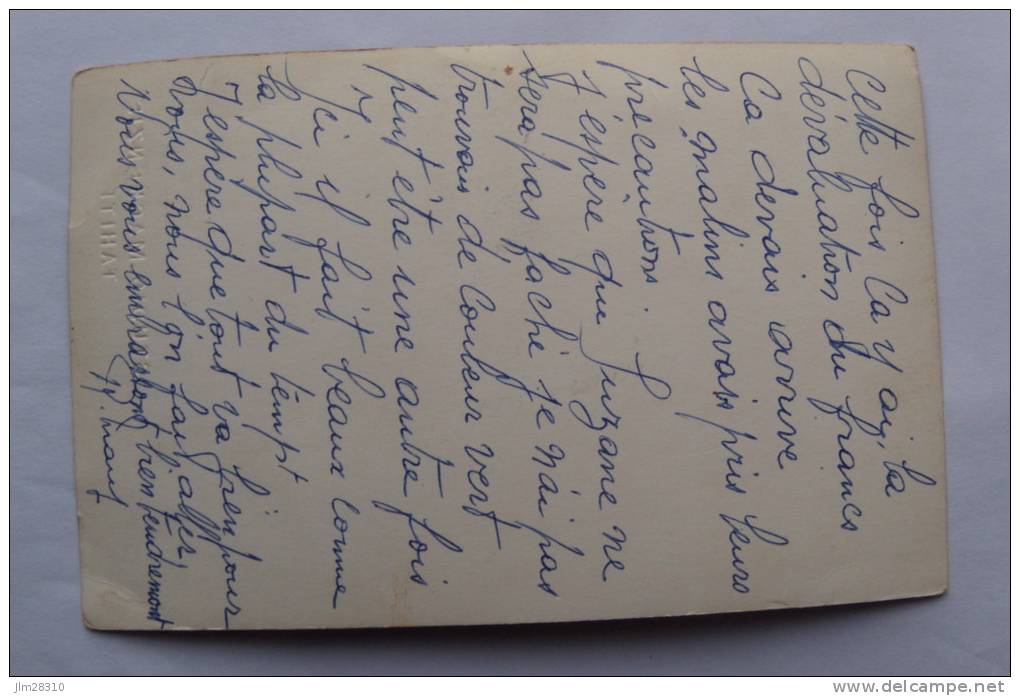 Cette fois Ca y ai, la
dévaluation du francs
Ca devais arrive
les malins avais pris leurs
précautions.
J'espère que Suzanne ne
sera pas faché je n'ai pas
trouvais de couleur vert
peut être une autre fois
Ici il fait beaux comme
la plupart du tempt
J'espère que tout va bien pour
vous, nous on fait aller,
Nous vous embrassont bien tendrement
TAHITI
jlm28310
delcampe.net